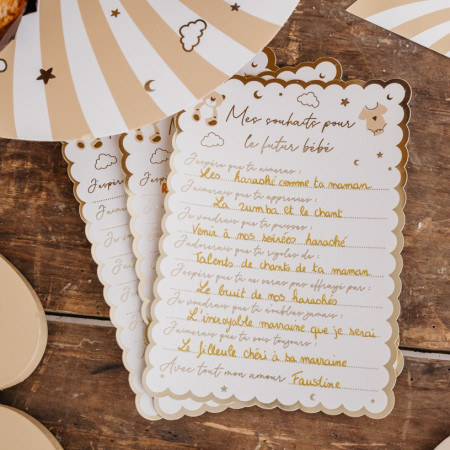 Mes souhaits pour
le futur bébé
J'espère que tu aimeras :
Les karaoké comme ta maman
J'aimerais que tu apprennes :
La zumba et le chant
Je voudrais que tu puisses :
Venir à nos soirées karaoké
J'adorerais que tu rigoles de :
Talents de chants de ta maman
J'espère que tu ne seras pas effrayé par :
Le bruit de nos karaokés
Je voudrais que tu n'oublies jamais :
L'incroyable marraine que je serai
J'aimerais que tu sois toujours :
Le filleule chéri à sa marraine
Avec tout mon amour Faustine